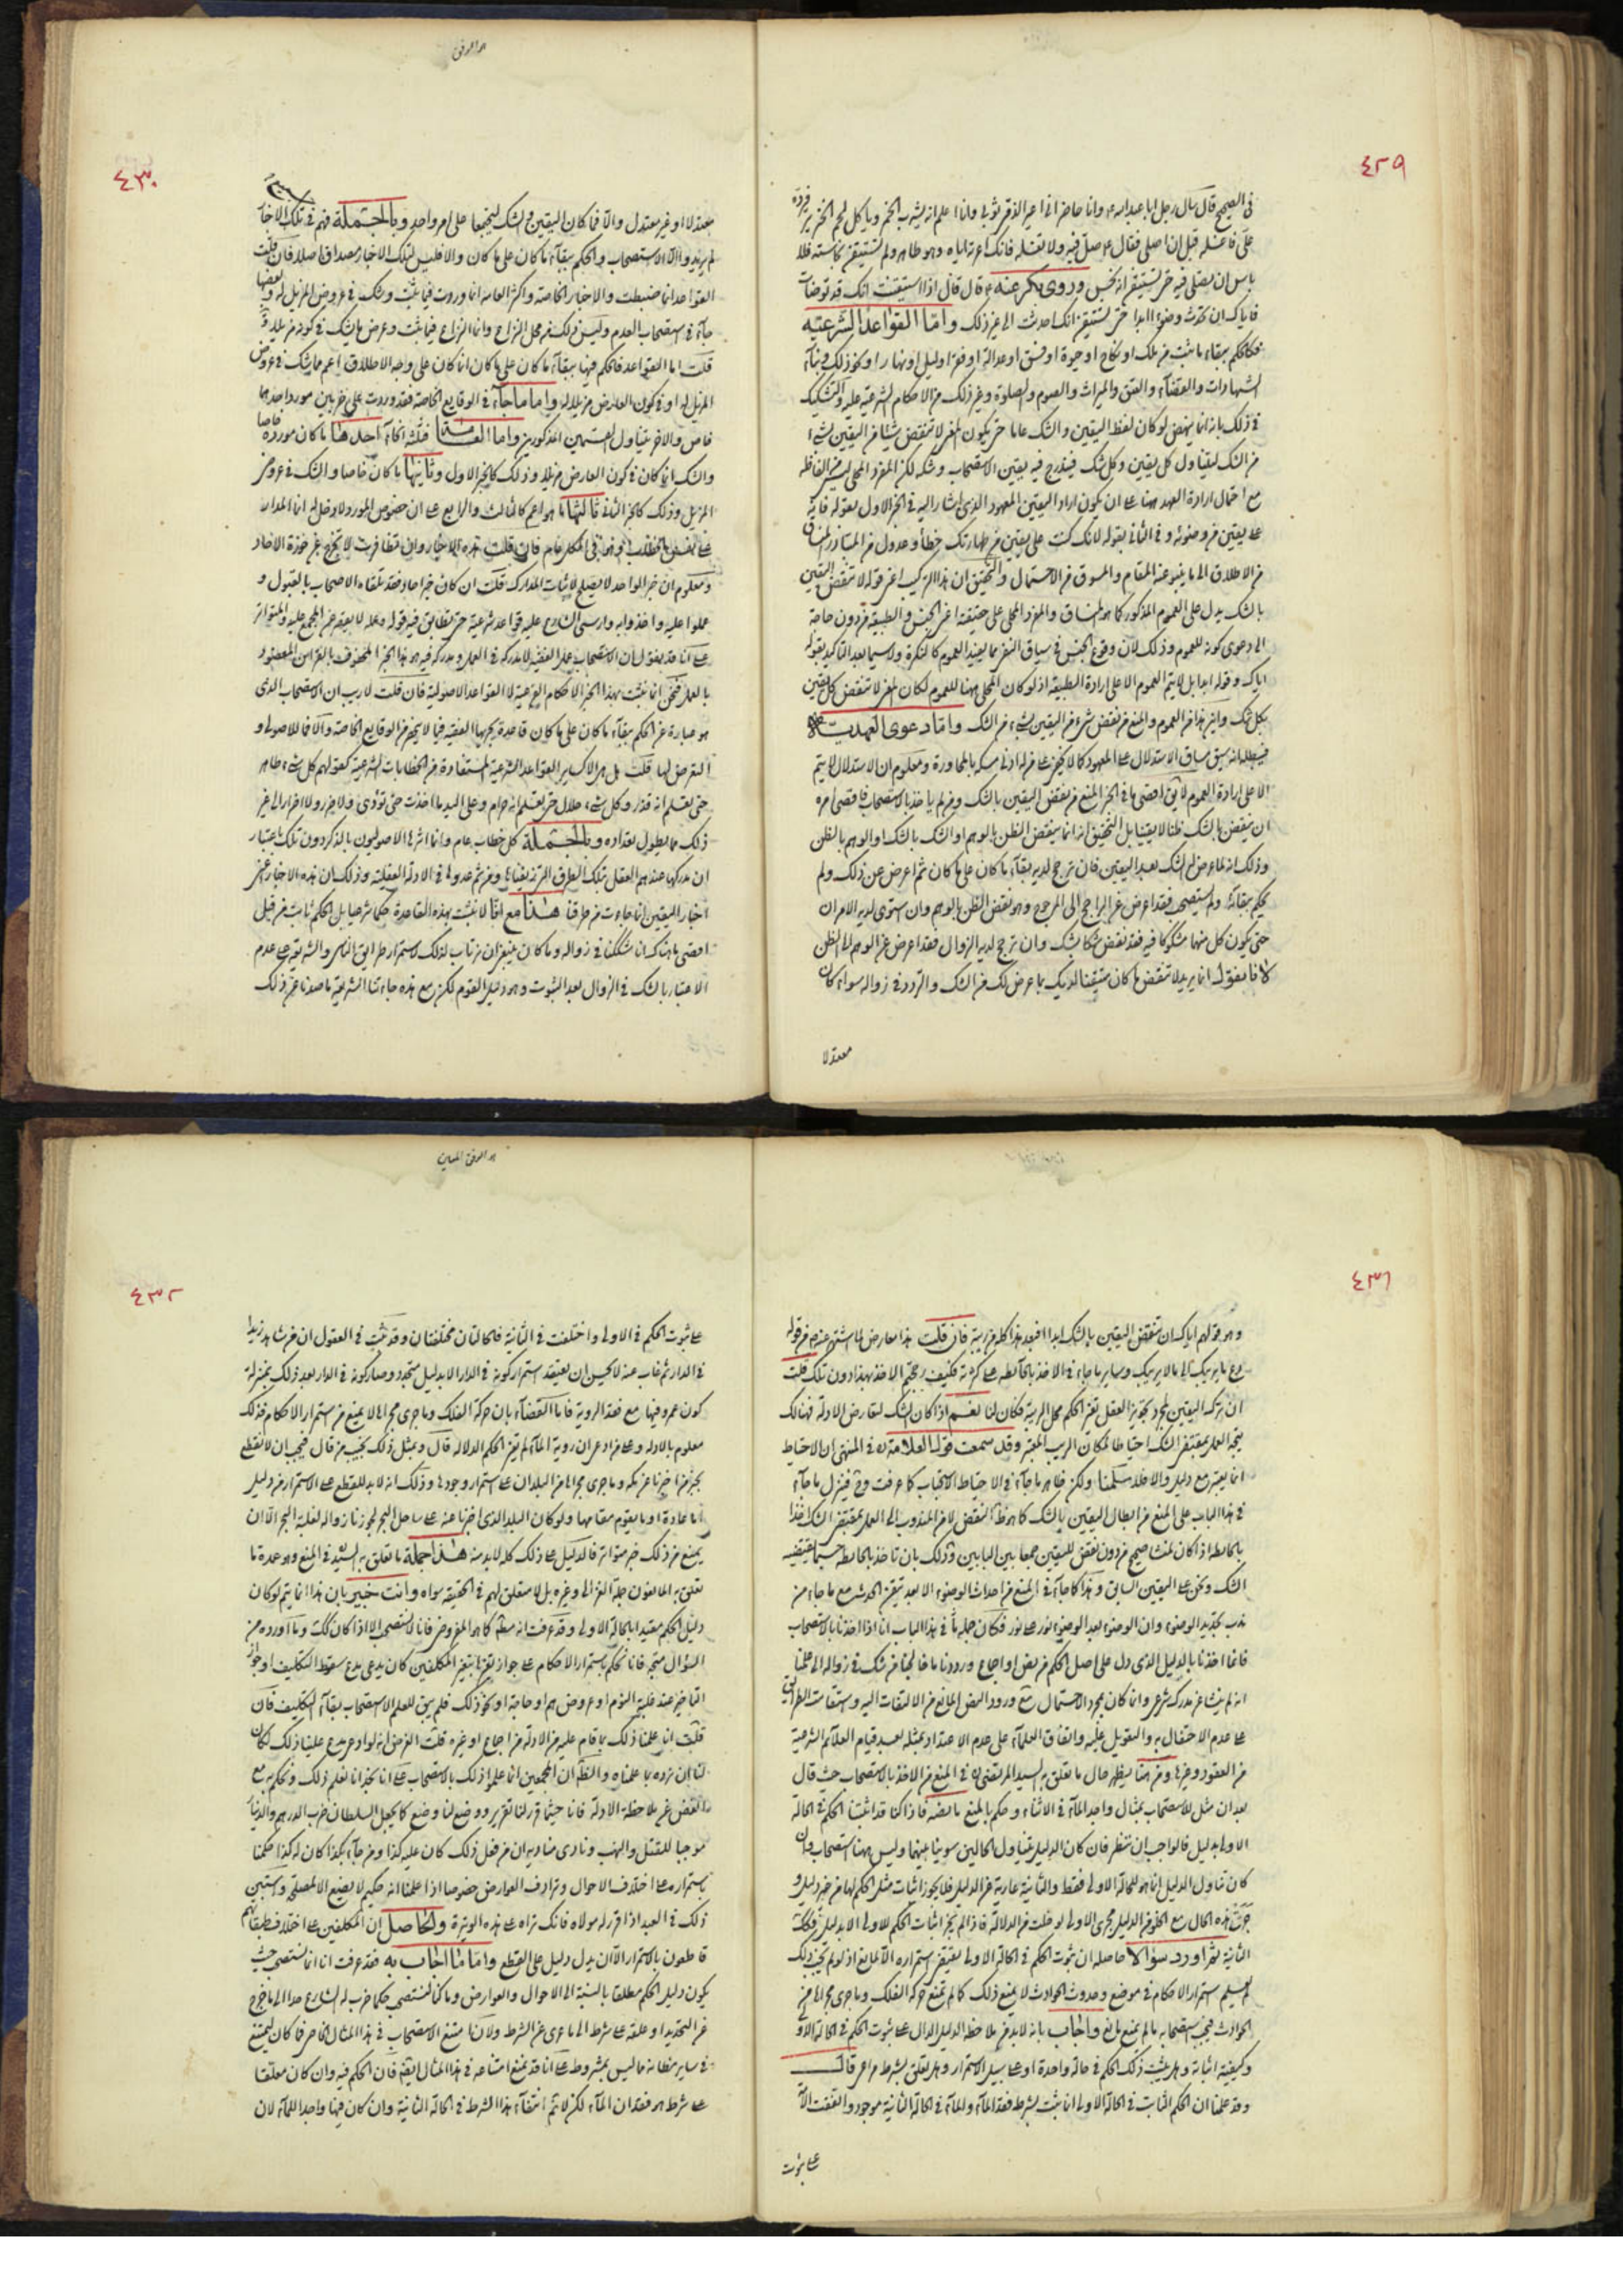 ٤٢٩
في الصحيح قال سأل رجل ابا عبد الله ع وانا حاضر اني اعير الذمي ثوبي وانا اعلم انه يشرب الخمر وياكل لحم الخنزير فيرده
علي فاغسله قبل ان اصلي فقال ع صل فيه ولا تغسله فانك اعرته اياه وهو طاهر ولم تستيقن نجاسته فلا
باس ان تصلي فيه حتى تستيقن انه نجس وروى بكير عنه ع قال قال اذا استيقنت انك قد توضات
فاياك ان تحدث وضوءا ابدا حتى تستيقن انك احدثت الى غير ذلك واما القواعد الشرعية
فكالحكم ببقاء ما ثبت من ملك او نكاح او حيوة او فسق او عدالة او ليل او نهار او نحو ذلك
الشهادات والقضاء والعتق والميراث والصوم والصلوة وغير ذلك من الاحكام الشرعية عليه والتشكيك
في ذلك بانه انما ينهض لو كان لفظ اليقين والشك عاما حتى يكون المعنى لا تنقض شيئا من اليقين بشيء
من الشك ليتناول كل يقين وكل شك فيندرج فيه يقين الاستصحاب وشكه لكن المفرد المحلى ليس من الفاظه
مع احتمال ارادة العهد ههنا على ان يكون اراد اليقين المعهود الذي اشار اليه في الخبر الاول بقوله فانه
على يقين من وضوئه وفي الثاني بقوله لانك كنت على يقين من طهارتك خطأ وعدول من المتبادر المنساق
من الاطلاق الى ما ينبو عنه المقام والمسوق من الاحتمال والتحقيق ان هذا التركيب اعني قوله لا تنقض اليقين
بالشك يدل على العموم المذكور كما هو المنساق والمفرد المحلى على حقيقته اعني الجنس والطبيعة من دون حاجة
الى دعوى كونه للعموم وذلك لان وقوع الجنس في سياق النفي مما يفيد العموم كالنكرة ولا سيما بعد التاكيد بقوله
اياك وقوله ابدا بل لا يتم العموم الا على ارادة الطبيعة اذ لو كان المحلى ههنا للعموم لكان المعنى لا تنقض كل يقين
بكل شك واين هذا من العموم والمنع من نقض شيء من اليقين بشيء من الشك واما دعوى العهدية
فيبطلها انه سيق مساق الاستدلال على المعهود كما لا يخفى على من له ادنى مسكة بالمحاورة ومعلوم ان الاستدلال لا يتم
الا على ارادة العموم لا يق اقصى ما في الخبر المنع من نقض اليقين بالشك ومن لم ياخذ بالاستصحاب فاقصى امره
ان ينقض بالشك ظنا لا يقينا بل التحقيق انه انما ينقض الظن بالوهم او الشك بالشك او الوهم بالظن
وذلك انه لما عرض له الشك بعد اليقين فان ترجح لديه بقاء ما كان على ما كان ثم اعرض عن ذلك ولم
يحكم ببقائه ولم يستصحب فقد اعرض عن الراجح الى المرجوح وهو نقض الظن بالوهم وان استوى لديه الامران
حتى يكون كل منهما مشكوكا فيه فقد نقض شكا بشك وان ترجح لديه الزوال فقد اعرض عن الوهم الى الظن
لانا نقول انما يريد لا تنقض ما كان متيقنا لديك بما عرض لك من الشك والتردد في زواله سواء كان
معتدلا
٤٣٠
معتدلا او غير معتدل والا فما كان اليقين والشك ليجتمعا على امر واحد وبالجملة فهم في تلك الاخبار
لم يريدوا الا الاستصحاب والحكم ببقاء ما كان على ما كان والا فليس لتلك الاخبار مصداق اصلا فان قلت
القواعد انما ضبطت والاخبار الخاصة واكثر العامة انما وردت فيما ثبت وشك في عروض المزيل له وبعضها
جاء في استصحاب العدم وليس ذلك من محل النزاع وانما النزاع فيما ثبت وعرض ما يشك في كونه مزيلا
قلت اما القواعد فالحكم فيها ببقاء ما كان على ما كان انما كان على وجه الاطلاق اعم مما يشك في عروض
المزيل له او في كون العارض مزيلا له واما ما جاء في الوقايع الخاصة فقد وردت على ضربين مورد احدهما
خاص والاخر يتناول القسمين المذكورين واما العامة فثلثة انحاء احدها ما كان مورده خاصا
والشك انما كان في كون العارض مزيلا وذلك كالخبر الاول وثانيها ما كان خاصا والشك في عروض
المزيل وذلك كالخبر الثاني ثالثها ما هو اعم كالثالث والرابع على ان خصوص المورد لا دخل له انما المدار
فان قلت هذه الاخبار وان تظافرت لا تخرج عن حوزة الاحاد
ومعلوم ان خبر الواحد لا يصلح لاثبات المدارك قلت ان كان خبر احاد فقد تلقاه الاصحاب بالقبول و
عملوا عليه واخذوا به
بالعمل فنحن انما نثبت بهذا الخبر الاحكام الفرعية لا القواعد الاصولية فان قلت لا ريب ان الاستصحاب الذي
هو عبارة عن الحكم ببقاء ما كان على ما كان قاعدة يجريها الفقيه فيما لا يحصى من الوقايع الخاصة والا فما للاصولي و
التعرض لها قلت بل هو الا كساير القواعد الشرعية المستفادة من الخطابات الشرعية كقولهم كل شيء طاهر
حتى تعلم انه قذر وكل شيء حلال حتى تعلم انه حرام وعلى اليد ما اخذت حتى تؤدي ولا ضرر ولا اضرار الى غير
ذلك مما يطول تعداده وبالجملة كل خطاب عام وانما اثرها الاصوليون بالذكر دون تلك باعتبار
ان مدركها عندهم العقل بتلك الطرق ومن ثم عدوها في الادلة العقلية وذلك ان هذه الاخبار اعني
اخبار اليقين انما جاءت من طرقنا هذا مع انا لا نثبت بهذه القاعدة حكما شرعيا بل الحكم ثابت من قبل
اقصى ما هناك انا شككنا في زواله وما كان ينبغي ان نرتاب لذلك لاستمرار طرايق الناس والشريعة على عدم
الاعتبار بالشك في الزوال بعد الثبوت وهو دليل القوم لكن مع هذه جاءتنا الشريعة ما صدنا عن ذلك
٤٣١
وهو قولهم اياك ان تنقض اليقين بالشك ابدا افبعد هذا كله من ريبة فان قلت هذا معارض لما اشتهر عنهم من قوله
دع ما يريبك الى ما لا يريبك وساير ما جاء في الاخذ بالحائطة على كثرته فكيف رجحتم الاخذ بهذا دون تلك قلت
ان ترك اليقين لمجرد تجويز العقل تغير الحكم محل الريبة فكان لنا نعم اذا كان الشك لتعارض الادلة فهنالك
يتجه العمل بمقتضى الشك احتياطا لمكان الريب المعتبر وقد سمعت قول العلامة ره في المنتهى ان الاحتياط
انما يعتبر مع دليل والا فلا سلمنا ولكن ظاهر ما جاء في الاحتياط الاستحباب كما عرفت وح فينزل ما جاء
في هذا الباب على المنع من ابطال اليقين بالشك كما هو ظ النقض لا من المندوب الى العمل بمقتضى الشك اخذا
بالحائطة اذا كان لمنشا صحيح من دون نقض لليقين جمعا بين البابين وذلك بان تاخذ بالحائطة حسبما يقتضيه
الشك ونحن على اليقين السابق وهذا كما جاء في المنع من احداث الوضوء الا بعد تيقن الحدث مع ما جاء من
ندب تجديد الوضوء وان الوضوء بعد الوضوء نور على نور فكان جملة ما في هذا الباب انا اذا اخذنا بالاستصحاب
فانما اخذنا بالدليل الذي دل على اصل الحكم من نص او اجماع ورددنا ما خالجنا من شك في زواله الى علمنا
انه لم ينشا عن مدرك شرعي وانما كان مجرد الاحتمال مع ورود النص المانع من الالتفات اليه واستقامت الطرايق
على عدم الاحتفال به والتعويل عليه واتفاق العلماء على عدم الاعتداد بمثله بعد قيام العلائم الشرعية
من العقود وغيرها ومن هنا يظهر حال ما تعلق به السيد المرتضى ره في المنع من الاخذ بالاستصحاب حيث قال
بعد ان مثل للاستصحاب بمثال واجد الماء في الاثناء وحكم بالمنع ما نصه فاذا كنا قد اثبتنا الحكم في الحالة
الاولى بدليل فالواجب ان ننظر فان كان الدليل يتناول الحالين سوينا بينهما وليس ههنا استصحاب وان
كان تناول الدليل انما هو للحالة الاولى فقط والثانية عارية من الدليل فلا يجوز اثبات مثل الحكم لها من غير دليل و
جرت هذه الحال مع الخلو من الدليل مجرى الاولى لو خلت من الدلالة فاذا لم يجز اثبات الحكم للاولى الا بدليل فكذلك
الثانية ثم اورد سؤالا حاصله ان ثبوت الحكم في الحالة الاولى يقتضي استمراره الا لمانع اذ لو لم يجب ذلك
لم يعلم استمرار الاحكام في موضع وحدوث الحوادث لا يمنع ذلك كما لم تمنع حركة الفلك وما جرى مجراه من
الحوادث فيجب استصحابه ما لم يمنع مانع واجاب بانه لا بد من ملاحظة الدليل الدال على ثبوت الحكم في الحالة الاولى
وكيفية اثباته وهل يثبت ذلك الحكم في حالة واحدة او على سبيل الاستمرار وهل يتعلق بشرط مراعى قال
وقد علمنا ان الحكم الثابت في الحالة الاولى انما ثبت بشرط فقد الماء والماء في الحالة الثانية موجود واتفقت الامة
على ثبوت
٤٣٢
على ثبوت الحكم في الاولى واختلفت في الثانية فالحالتان مختلفتان وقد ثبت في العقول ان من شاهد زيدا
في الدار ثم غاب عنه لا يحسن ان يعتقد استمرار كونه في الدار الا بدليل متجدد وصار كونه في الدار بعد ذلك بمنزلة
كون عمرو فيها مع فقد الروية فاما القضاء بان حركة الفلك وما جرى مجراها لا يمنع من استمرار الاحكام فذلك
معلوم بالادلة وعلى من ادعى ان روية الماء لم تغير الحكم الدلالة قال وبمثل ذلك نجيب من قال فيجب ان لا نقطع
بخبر من اخبرنا عن مكة وما جرى مجراها من البلدان على استمرار وجودها وذلك انه لا بد للقطع على الاستمرار من دليل
اما عادة او ما يقوم مقامها ولو كان البلد الذي اخبرنا عنه على ساحل البحر لجوزنا زواله لغلبة البحر الا ان
يمنع من ذلك خبر متواتر فالدليل على ذلك كله لا بد منه هذا جملة ما تعلق به السيد في المنع وهو عمدة ما
تعلق به المانعون جملة الغزالي وغيره بل لا متعلق لهم في الحقيقة سواه وانت خبير بان هذا انما يتم لو كان
دليل الحكم مقيدا بالحالة الاولى وقد عرفت انه مطلق كما هو المفروض فانا لا نستصحب الا اذا كان كك وما اورده من
السؤال متجه فانا نحكم باستمرار الاحكام على جواز تغيرها بتغير المكلفين كان يدعى مدع سقوط التكليف او جواز
التاخير عند غلبة النوم او عروض هم او حاجة او نحو ذلك فلم يبق للعلم الا استصحاب بقاء التكليف فان
قلت انما علمنا ذلك بما قام عليه من الادلة من اجماع او غيره قلت الغرض انه لو ادعى مدع علينا ذلك لكان
لنا ان نرده بما علمناه والظ ان المجمعين انما علموا ذلك بالاستصحاب على انا نجد انا نعلم ذلك ونحكم به مع
الغض عن ملاحظة الادلة فانا حيثما قرر لنا تقرير ووضع لنا وضع كما يجعل السلطان ضرب الدرهم والدينار
موجبا للقتل والنهب ونادى مناديه ان من فعل ذلك كان عليه كذا ومن جاء بكذا كان له كذا حكمنا
باستمراره على اختلاف الاحوال وترادف العوارض خصوصا اذا علمنا انه حكيم لا يضيع الا لمصلحة واستبين
ذلك في العبد اذا قرر له مولاه فانك تراه على هذه الوتيرة والحاصل ان المكلفين على اختلاف طبقاتهم
قاطعون بالاستمرار الا ان يدل دليل على القطع واما ما اجاب به فقد عرفت انا انما نستصحب حيث
يكون دليل الحكم مطلقا بالنسبة الى الاحوال والعوارض وما كنا لنستصحب حكما ضرب له الشارع حدا الى ما خرج
عن التحديد او علقه على شرط الى ما عرى عن الشرط ولان امتنع الاستصحاب في هذا المثال الخاص فما كان ليمتنع
في ساير مظانه مما ليس بمشروط على انا قد نمنع امتناعه في هذا المثال ايضا فان الحكم فيه وان كان معلقا
على شرط هو فقدان الماء لكن لا نتم انتفاء هذا الشرط في الحالة الثانية وان كان فيها واجدا للماء لان